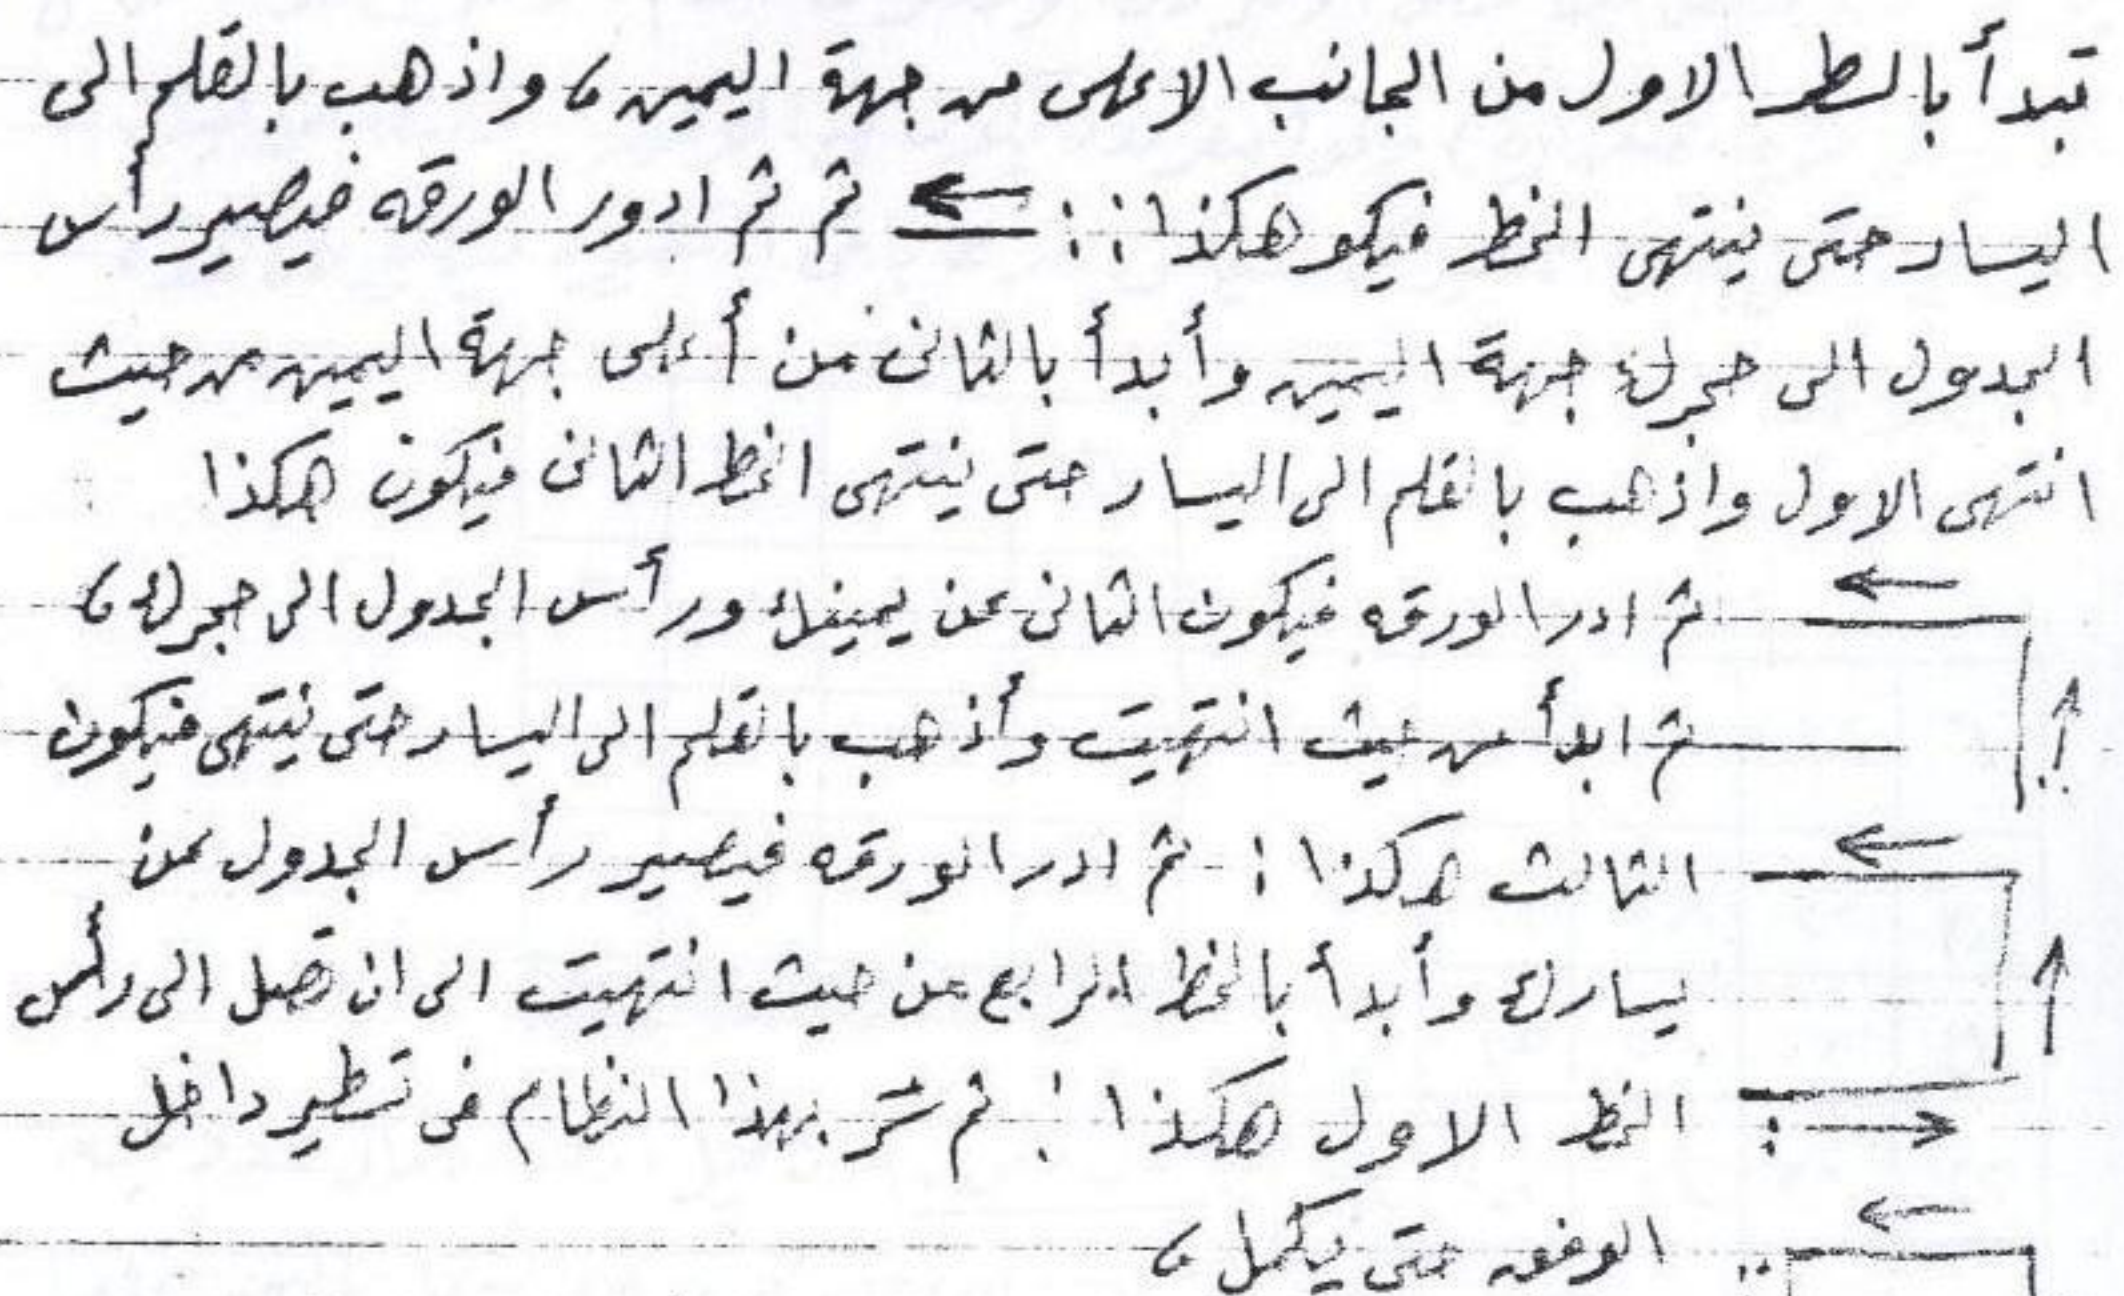 تبدأ بالسطر الاول من الجانب الاعلى من جهة اليمين، واذهب بالقلم الى
اليسار حتى ينتهى الخط فيكو هكذا :: ← ثم ثم ادور الورقه فيصير رأس
الجدول الى حجرك جهة اليمين وأبدأ بالثانى من أعلى جهة اليمين من حيث
انتهى الاول واذهب بالقلم الى اليسار حتى ينتهى الخط الثانى فيكون هكذا
ثم ادر الورقه فيكون الثانى عن يمينك ورأس الجدول الى حجرك،
ثم ابدأ من حيث انتهيت وأذهب بالقلم الى اليسار حتى ينتهى فيكون
الثالث هكذا : ثم ادر الورقه فيصير رأس الجدول عن
يسارك وأبدأ بالخط الرابع من حيث انتهيت الى ان تصل الى رأس
الخط الاول هكذا : ثم بهذا النظام فى تسطير داخل
الوفق حتى يكمل،